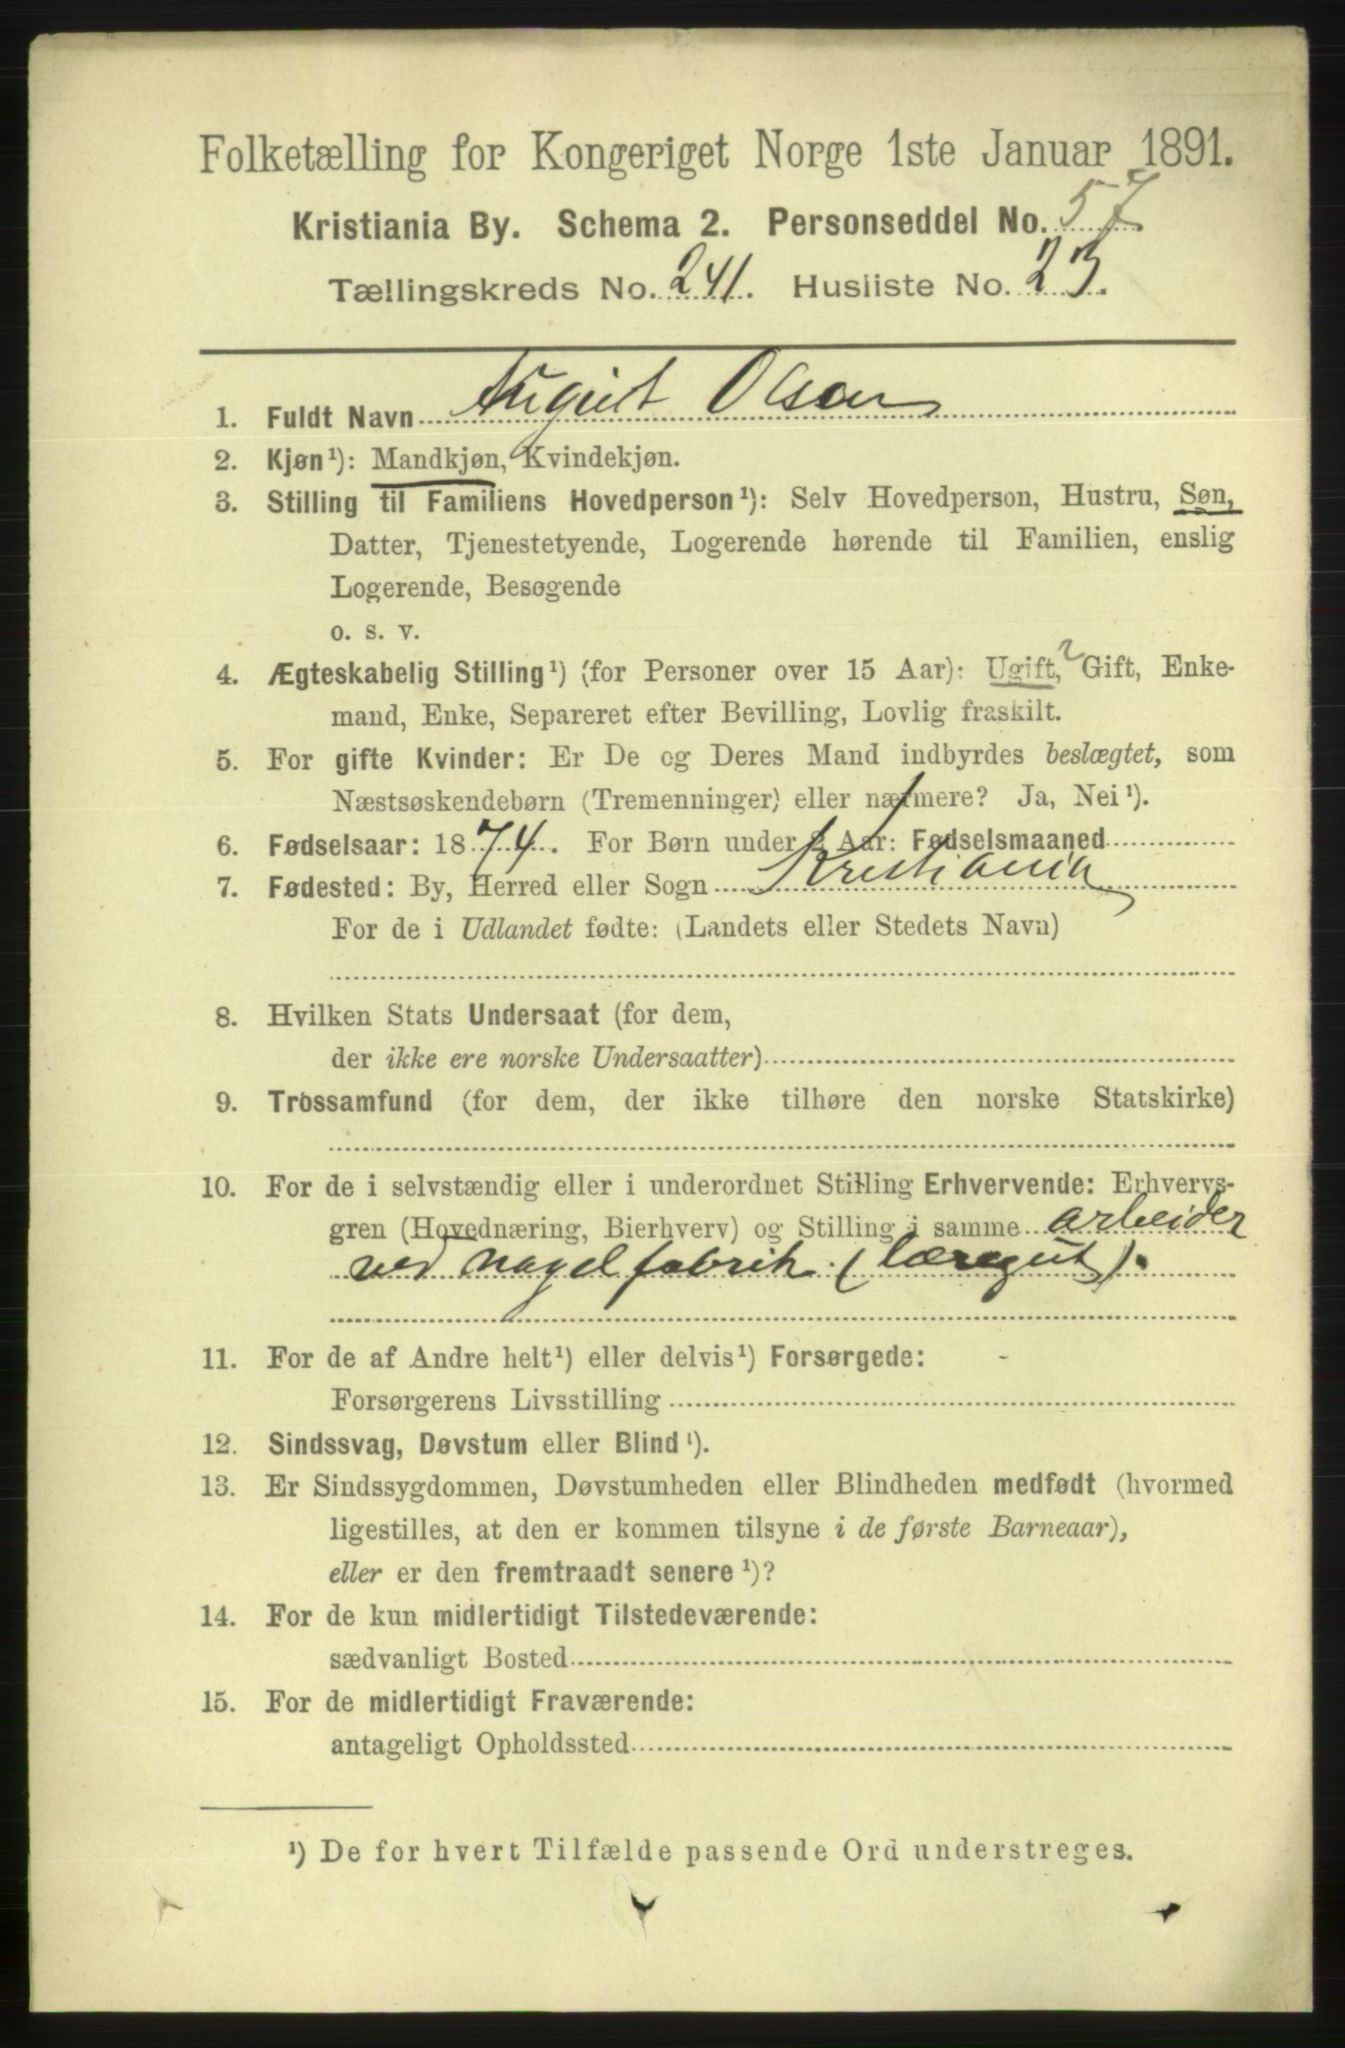 Folketælling for Kongeriget Norge 1ste Januar 1891.
Kristiania By. Schema 2. Personseddel No. 57
Tællingskreds No. 241. Husliste No. 23.
1. Fuldt Navn August Olsen
2. Kjøn¹): Mandkjøn, Kvindekjøn.
3. Stilling til Familiens Hovedperson¹): Selv Hovedperson, Hustru, Søn,
Datter, Tjenestetyende, Logerende hørende til Familien, enslig
Logerende, Besøgende
o. s. v.
4. Ægteskabelig Stilling¹) (for Personer over 15 Aar): Ugift, Gift, Enke-
mand, Enke, Separeret efter Bevilling, Lovlig fraskilt.
5. For gifte Kvinder: Er De og Deres Mand indbyrdes beslægtet, som
Næstsøskendebørn (Tremenninger) eller nærmere? Ja, Nei¹).
6. Fødselsaar: 1874. For Børn under 2 Aar: Fødselsmaaned
7. Fødested: By, Herred eller Sogn Kristiania
For de i Udlandet fødte: (Landets eller Stedets Navn)
8. Hvilken Stats Undersaat (for dem,
der ikke ere norske Undersaatter)
9. Trossamfund (for dem, der ikke tilhøre den norske Statskirke)
10. For de i selvstændig eller i underordnet Stilling Erhvervende: Erhvervs-
gren (Hovednæring, Bierhverv) og Stilling i samme arbeider
ved nagelfabrik (læregut).
11. For de af Andre helt¹) eller delvis¹) Forsørgede:
Forsørgerens Livsstilling
12. Sindssvag, Døvstum eller Blind¹).
13. Er Sindssygdommen, Døvstumheden eller Blindheden medfødt (hvormed
ligestilles, at den er kommen tilsyne i de første Barneaar),
eller er den fremtraadt senere¹)?
14. For de kun midlertidigt Tilstedeværende:
sædvanligt Bosted
15. For de midlertidigt Fraværende:
antageligt Opholdssted
¹) De for hvert Tilfælde passende Ord understreges.